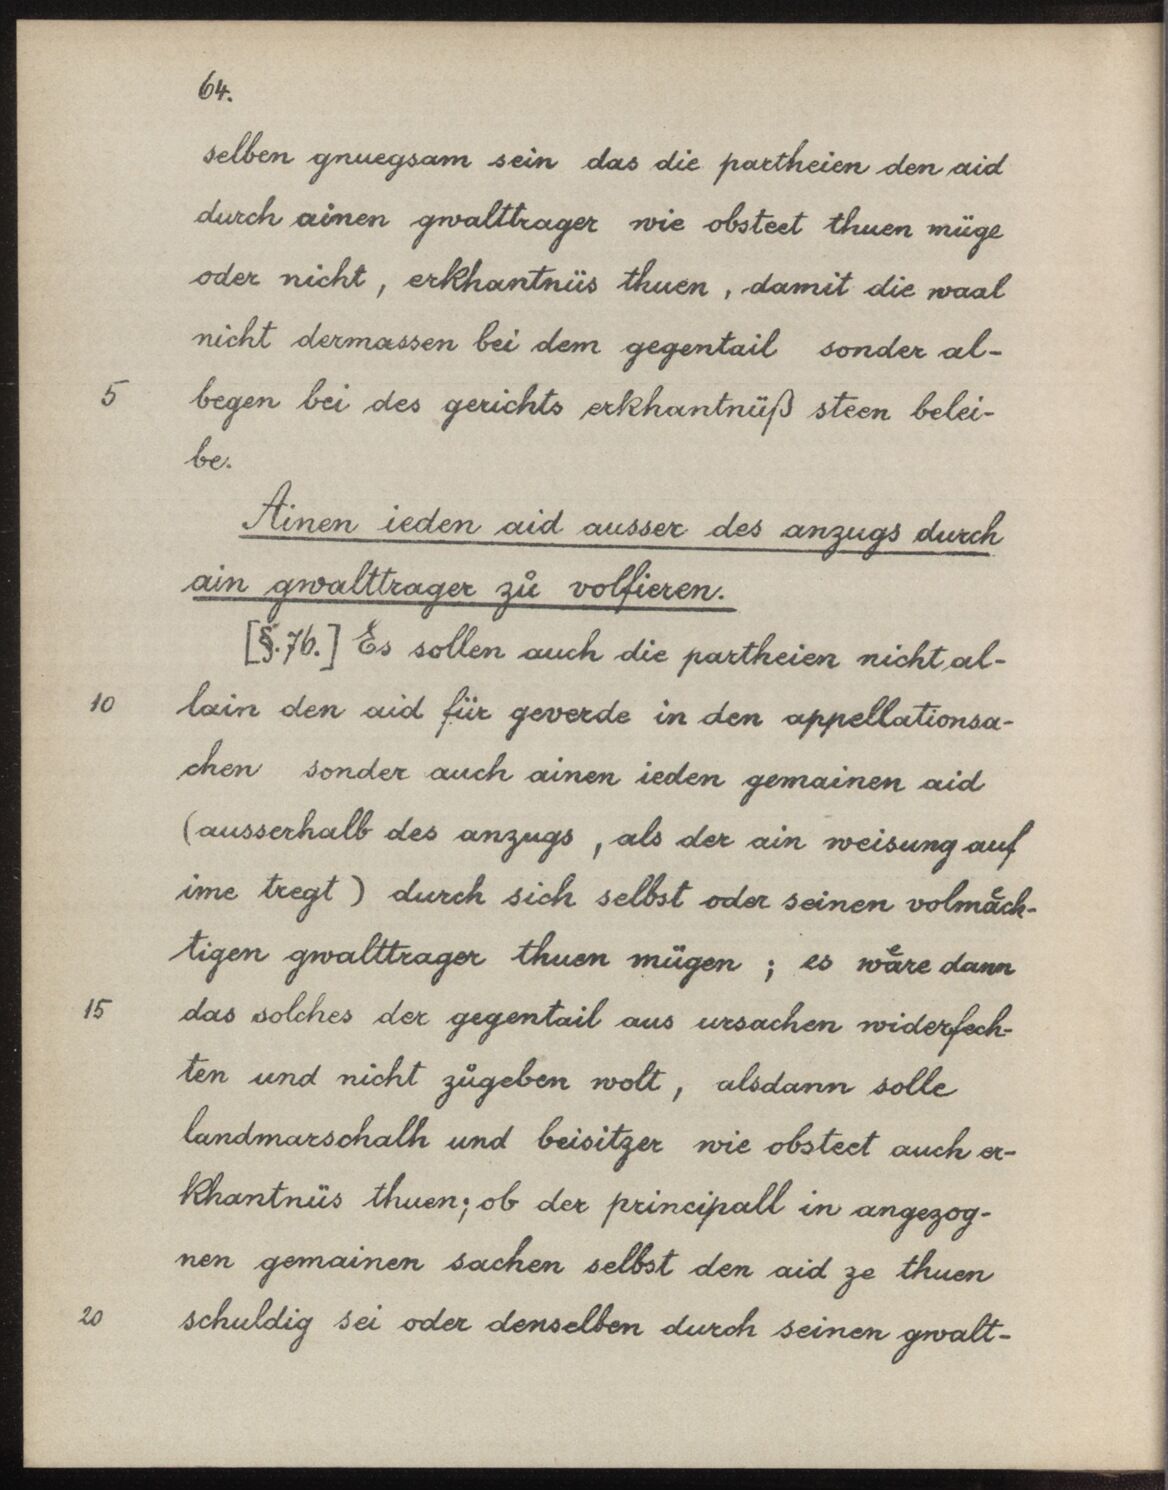 64.
selben gnuegsam sein das die partheien den aid
durch ainen gwalttrager wie obsteet thuen müge
oder nicht, erkhantnüs thuen, damit die waal
nicht dermassen bei dem gegentail sonder al-
5 begen bei des gerichts erkhantnüß steen belei-
be.
Ainen ieden aid ausser des anzugs durch
ain gwalttrager zů volfieren.
[§. 76.] Es sollen auch die partheien nicht al-
10 lain den aid für geverde in den appellationsa-
chen sonder auch ainen ieden gemainen aid
(ausserhalb des anzugs, als der ain weisung auf
ime tregt) durch sich selbst oder seinen volmaͤch-
tigen gwalttrager thuen mügen; es waͤre dann
15 das solches der gegentail aus ursachen widerfech-
ten und nicht zůgeben wolt, alsdann solle
landmarschalh und beisitzer wie obsteet auch er-
khantnüs thuen; ob der principall in angezog-
nen gemainen sachen selbst den aid ze thuen
20 schuldig sei oder denselben durch seinen gwalt-